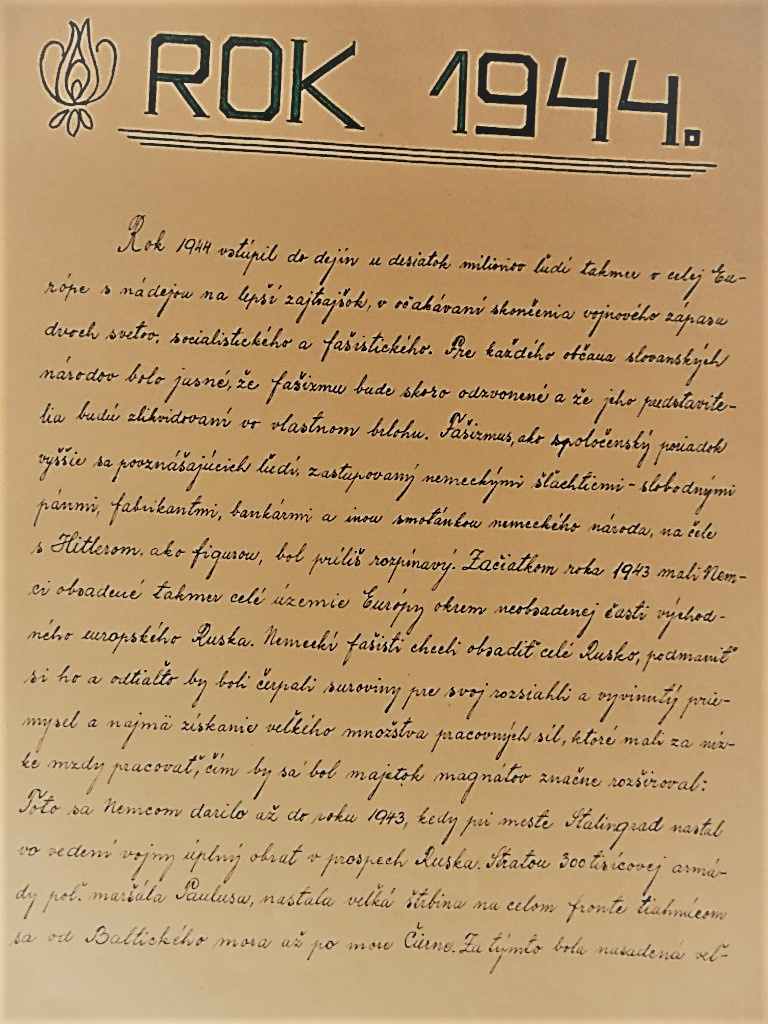 ROK 1944.
Rok 1944 vstúpil do dejín u desiatok miliónov ľudí takmer v celej Eu-
rópe s nádejou na lepší zajtrajšok, v očakávaní skončenia vojnového zápasu
dvoch svetov, socialistického a fašistického. Pre každého občana slovanských
národov bolo jasné, že fašizmu bude skoro odzvonené a že jeho predstavite-
lia budú zlikvidovaní vo vlastnom brlohu. Fašizmus, ako spoločenský poriadok
vyššie sa povznášajúcich ľudí, zastupovaný nemeckými šľachticmi - slobodnými
pánmi, fabrikantmi, bankármi a inou smotánkou nemeckého národa, na čele
s Hitlerom, ako figurou, bol príliš rozpínavý. Začiatkom roka 1943 mali Nem-
ci obsadené takmer celé územie Európy okrem neobsadenej časti východ-
ného europského Ruska. Nemeckí fašisti chceli obsadiť celé Rusko, podmaniť
si ho a odtiaľto by boli čerpali suroviny pre svoj rozsiahli a vyvinutý prie-
mysel a najmä získanie veľkého množstva pracovných síl, ktoré mali za níz-
ke mzdy pracovať, čím by sa bol majetok magnátov značne rozširoval:
Toto sa Nemcom darilo až do roku 1943, kedy pri meste Stalingrad nastal
vo vedení vojny úplný obrat v prospech Ruska. Stratou 300 tisícovej armá-
dy poľ. maršála Paulusa, nastala veľká štrbina na celom fronte tiahnúcom
sa od Baltického mora až po more Čierne. Za týmto bola nasadená veľ-